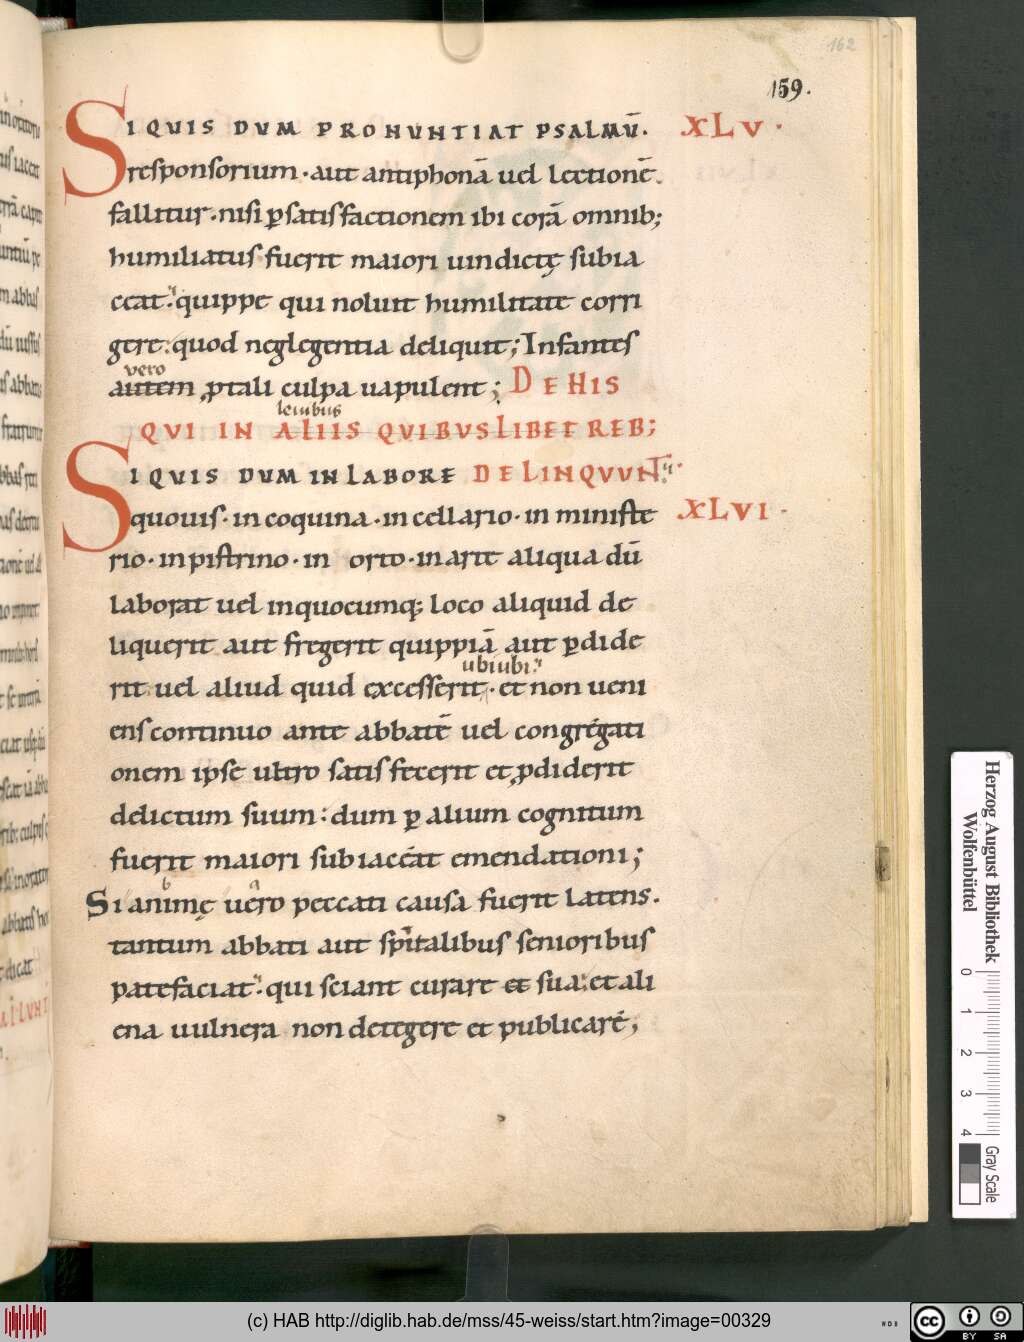 162
159.
SIQUIS DUM PRONUNTIAT PSALMŪ. XLV.
responsorium· aut antiphonā uel lectionē.
fallitur· nisi ꝑ satisfactionem ibi corā omnib;
humiliatus fuerit maiori uindictę subia
ceat· quippe qui noluit humilitate corri
gere: quod neglegentia deliquit; Infantes
vero
autem ꝓ tali culpa uapulent; DE HIS
leuibus
QVI IN ALIIS QVIBUSLIBET REB;
SIQUIS DUM IN LABORE DELINQVUNT·
quouis· in coquina· in cellario· in ministe XLVI·
rio· in pistrino· in orto· in arte aliqua dū
laborat uel in quocumq; loco aliquid de
liquerit aut fregerit quippiā aut ꝑdide
ubiubi
rit uel aliud quid excesserit· et non ueni
ens continuo ante abbatē uel congregati
onem ipse ultro satisfecerit et ꝓdiderit
delictum suum: dum ꝑ alium cognitum
fuerit maiori subiaceat emendationi;
Si animę uero peccati causa fuerit latens.
tantum abbati aut sp̄italibus senioribus
patefaciat· qui sciant curare et sua: et ali
ena uulnera non detegere et publicare;
Herzog August Bibliothek
Wolfenbüttel
0 1 2 3 4
Gray Scale
(c) HAB http://diglib.hab.de/mss/45-weiss/start.htm?image=00329
WDB
cc BY SA